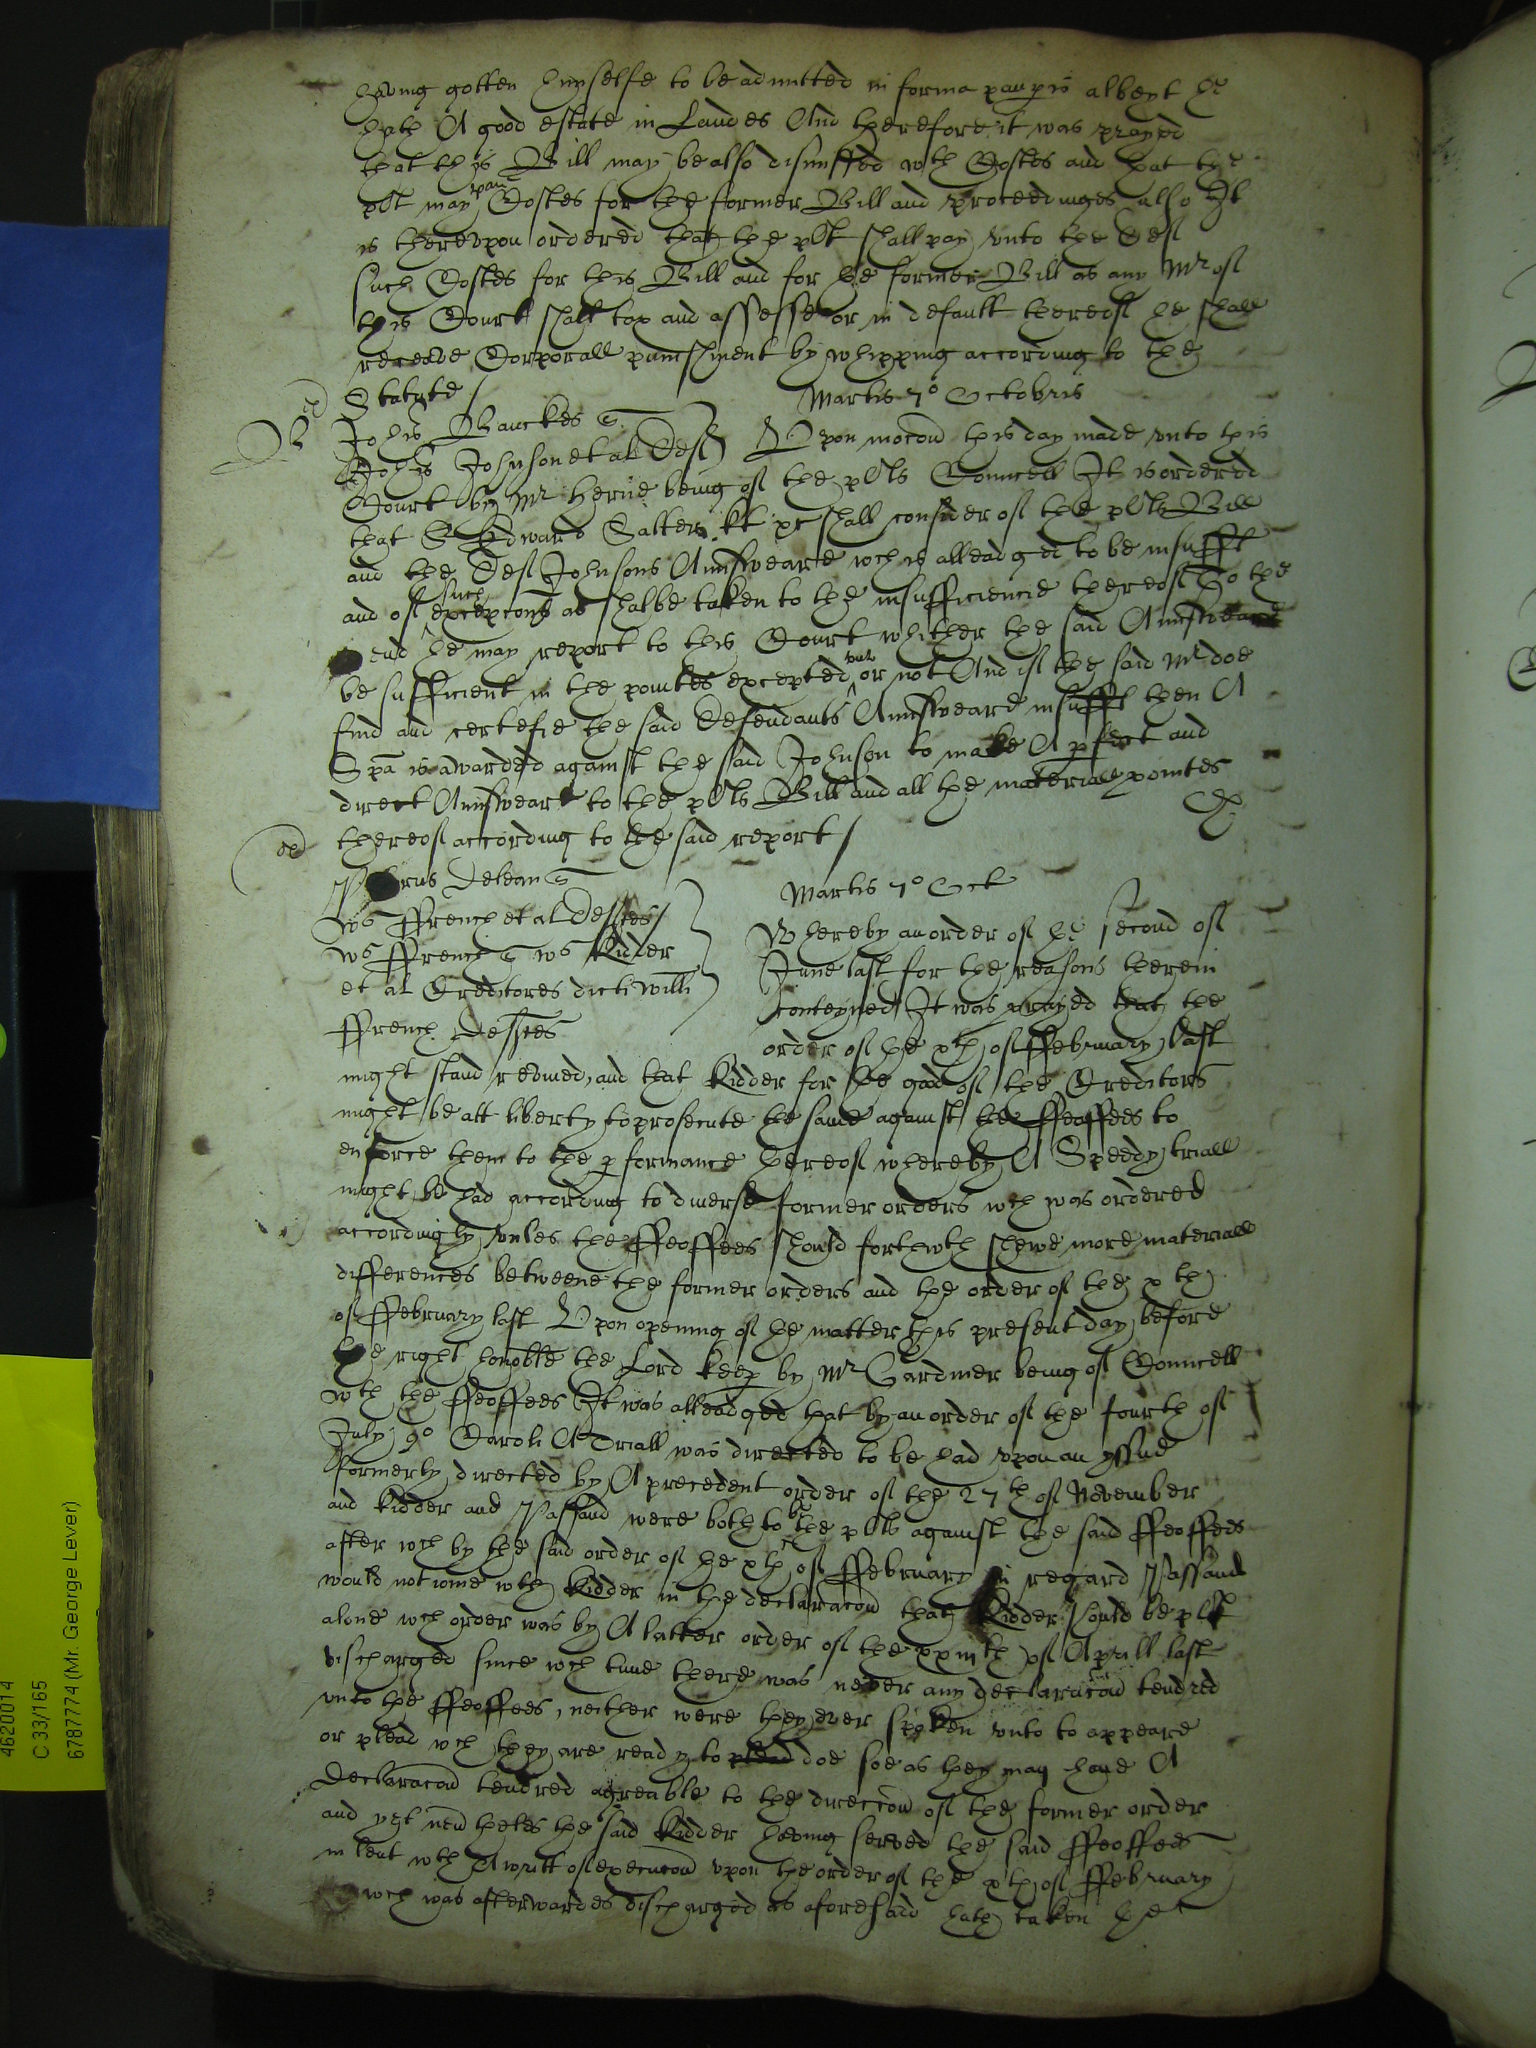 having gotten himselfe to be admitted in forma pauperis albeyt he
hath A good estate in Landes And therefore it was prayed
that this Bill may be also dismissed wth Costes and that the
plt may have Costes for the former Bill and proceedinges also It
is therevpon ordered that the plt shall pay vnto the Deft
such Costes for this Bill and for the former Bill as any Mr of
this Court shall tax and assesse or in default thereof he shall
receave Corporall punishment by whipping according to the
Statute /
Martis 7o Octobris
Johis Banckes
Johis Johnson et al Deft Vpon mocon this day made vnto this
Court by Mr Herne being of the plts Councell It is ordered
that Sr Edward Salter kt &c shall consider of the plts Bill
and the Deft Johnsons Aunsweare wch is alleadged to be insufft
and of such excepcons as shalbe taken to the insufficiencie thereof To the
end he may report to this Court whither the said Aunsweare
be sufficient in the pointes excepted vnto or not And if the said Mr doe
find and certefie the said Defendants Aunsweare insufft then A
Spa is awarded against the said Johnson to make A perfect and
direct Aunsweare to the plts Bill and all the materiall pointes
thereof according to the said report /
Martis 7o Oct
ws ffrench et al Deftes
ws ffrench ws Kidder
et al Creditores dicti willi
ffrench Deftes
Whereby an order of the second of
June last for the reasons therein
conteyned It was prayed that the
order of the xth of ffebruary last
might stand revived, and that Kidder for the good of the Creditors
might be att liberty to prosecute the same against the ffeoffees to
enforce them to the performance thereof whereby A Speedy triall
might be had according to diverse former orders wch was ordered
accordingly vnles the ffeoffees should forthwth shewe more materiall
differences betweene the former orders and the order of the xth
of ffebruary last Vpon opening of the matter this present day before
the right honoble the Lord Keep by Mr Gardiner being of Councell
wth the ffeoffees It was alleadged that by an order of the fourth of
July 9o Caroli A Triall was directed to be had vpon an yssue
formerly directed by A precedent order of the 27th of November
and Kidder and Passand were both to be the plts against the said ffeoffees
after wch by the said order of the xth of ffebruary in regard Passand
would not ioine wth Kidder in the declaracon that Kidder should be plt
alone wch order was by A latter order of the xxiiith of Aprill last
discharged since wch time there was never any declaracon tendred
vnto the ffeoffees, neither were they ever spoken vnto to appeare
or plead wch they are ready to doe soe as they may have A
Declaracon tendred agreable to the direccon of the former order
and yet nevertheles the said Kidder having served the said ffeoffees
in lent wth A writt of execucon vpon the order of the xth of ffebruary
wch was afterwardes discharged as aforesaid hath taken the
4620014
C 33/165
6787774 (Mr. George Lever)